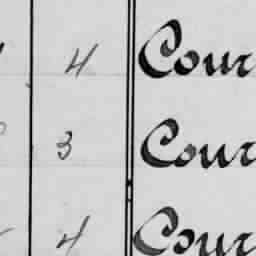 4 Cour
3 Cour
4 Cour